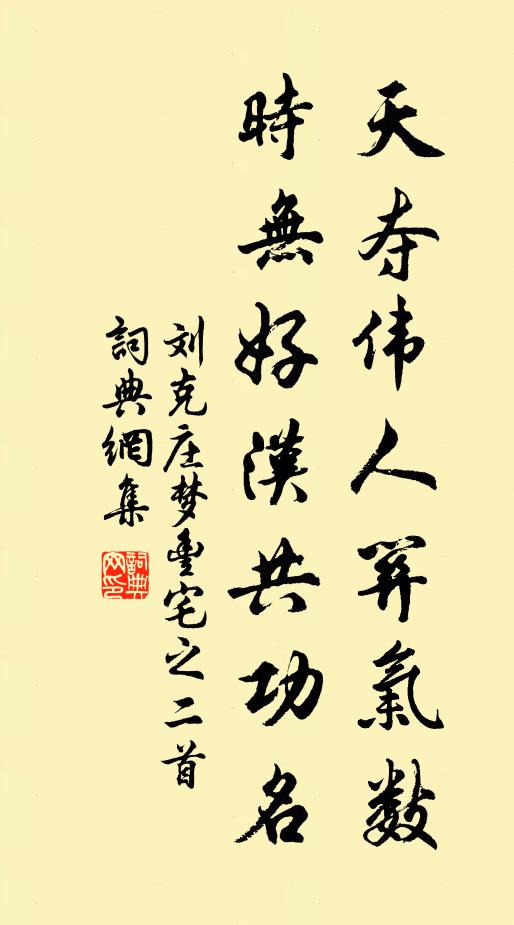 天夺伟人関氣数
時無好漢共功名
刘克庄梦豊宅之二首
詞典網集
詞典网印